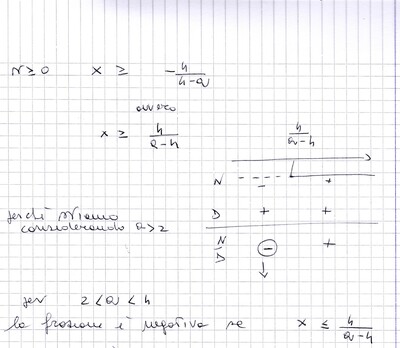 N ≥ 0 x ≥ -4/(4-a)
ovvero
x ≥ 4/(a-4)
4/(a-4)
N - - - - - +
perché stiamo D + +
considerando a>2
N/D - +
per 2 < a < 4
la frazione è negativa se x ≤ 4/(a-4)